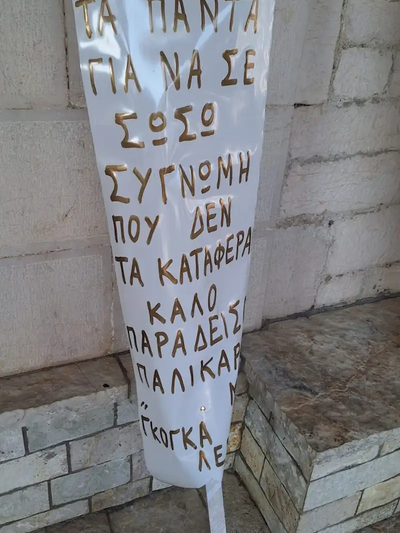 ΤΑ ΠΑΝΤΑ
ΓΙΑ ΝΑ ΣΕ
ΣΩΣΩ
ΣΥΓΝΩΜΗ
ΠΟΥ ΔΕΝ
ΤΑ ΚΑΤΑΦΕΡΑ
ΚΑΛΟ
ΠΑΡΑΔΕΙΣΟ
ΠΑΛΙΚΑΡ
Μ
" ΓΚΟΓΚΑ
ΛΕ